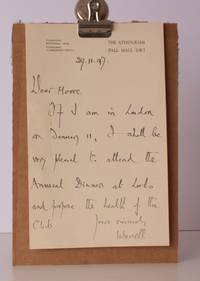 THE ATHENÆUM
PALL MALL S.W.1
29.11.47.
Dear Moore.
If I am in London
on January 11, I shall be
very pleased to attend the
Annual Dinner at Lords
and propose the health of the
Club
Yours sincerely
Wavell